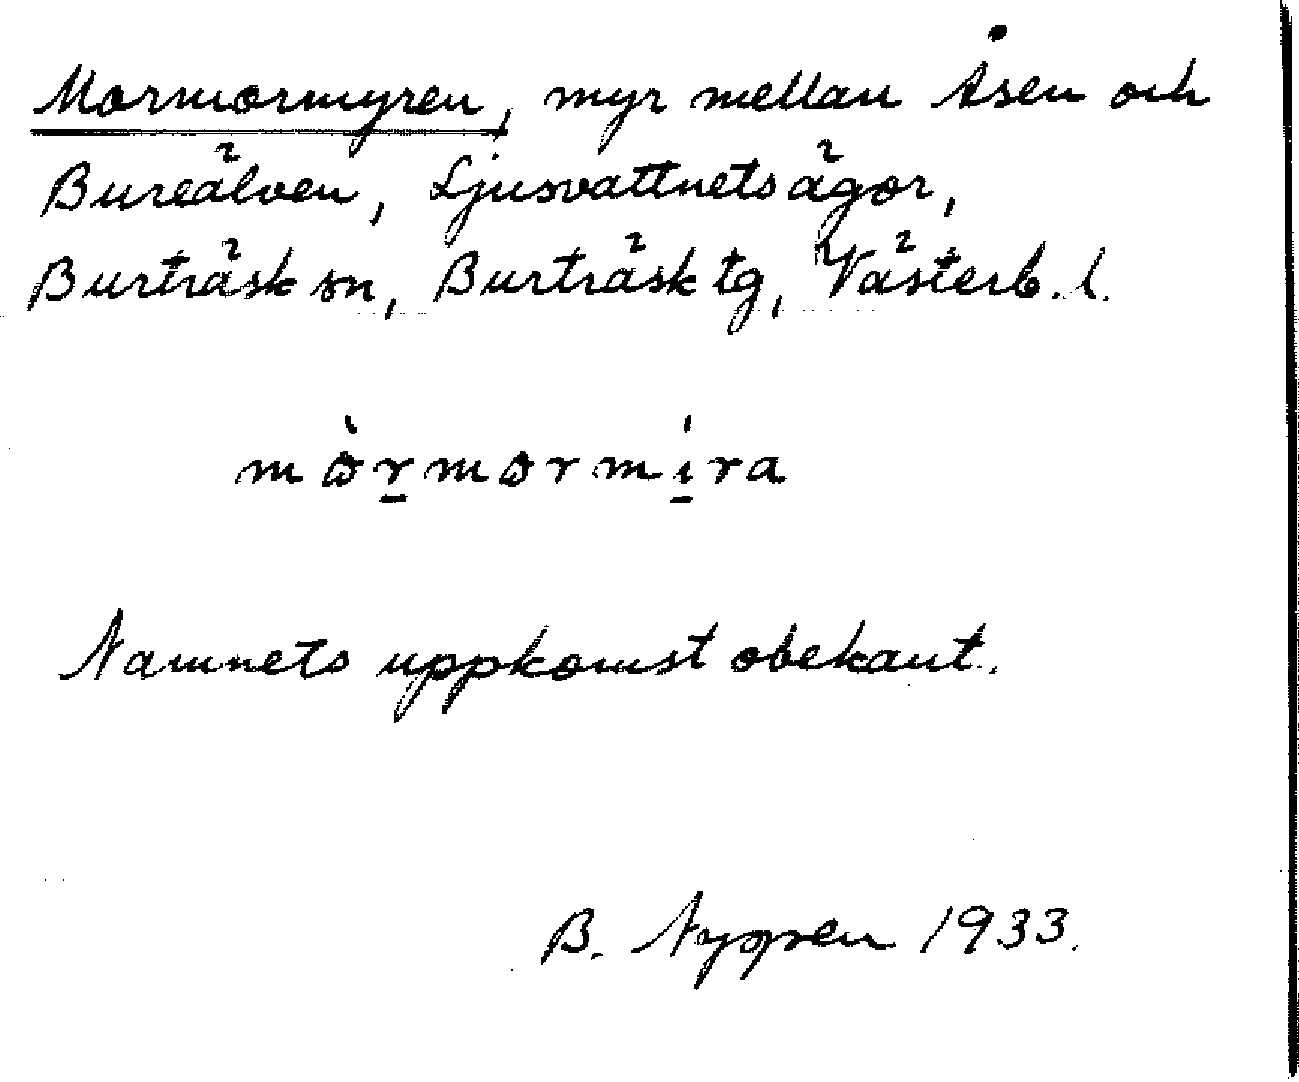 Mormormyren, myr mellan Åsen och
Bureälven, Ljusvattnets ägor,
Burträsk sn, Burträsk tg, Västerb. l.
mòr̠mormi̠ra
Namnets uppkomst obekant.
B. Nygren 1933.